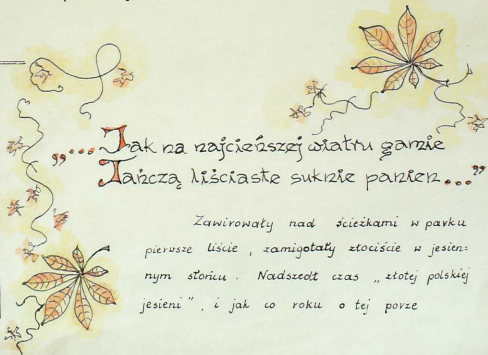 „...Jak na najcieńszej wiatru gamie
Tańczą liściaste suknie panien..."
Zawirowały nad ścieżkami w parku
pierwsze liście, zamigotały złociście w jesien=
nym słońcu. Nadszedł czas „złotej polskiej
jesieni", i jak co roku o tej porze